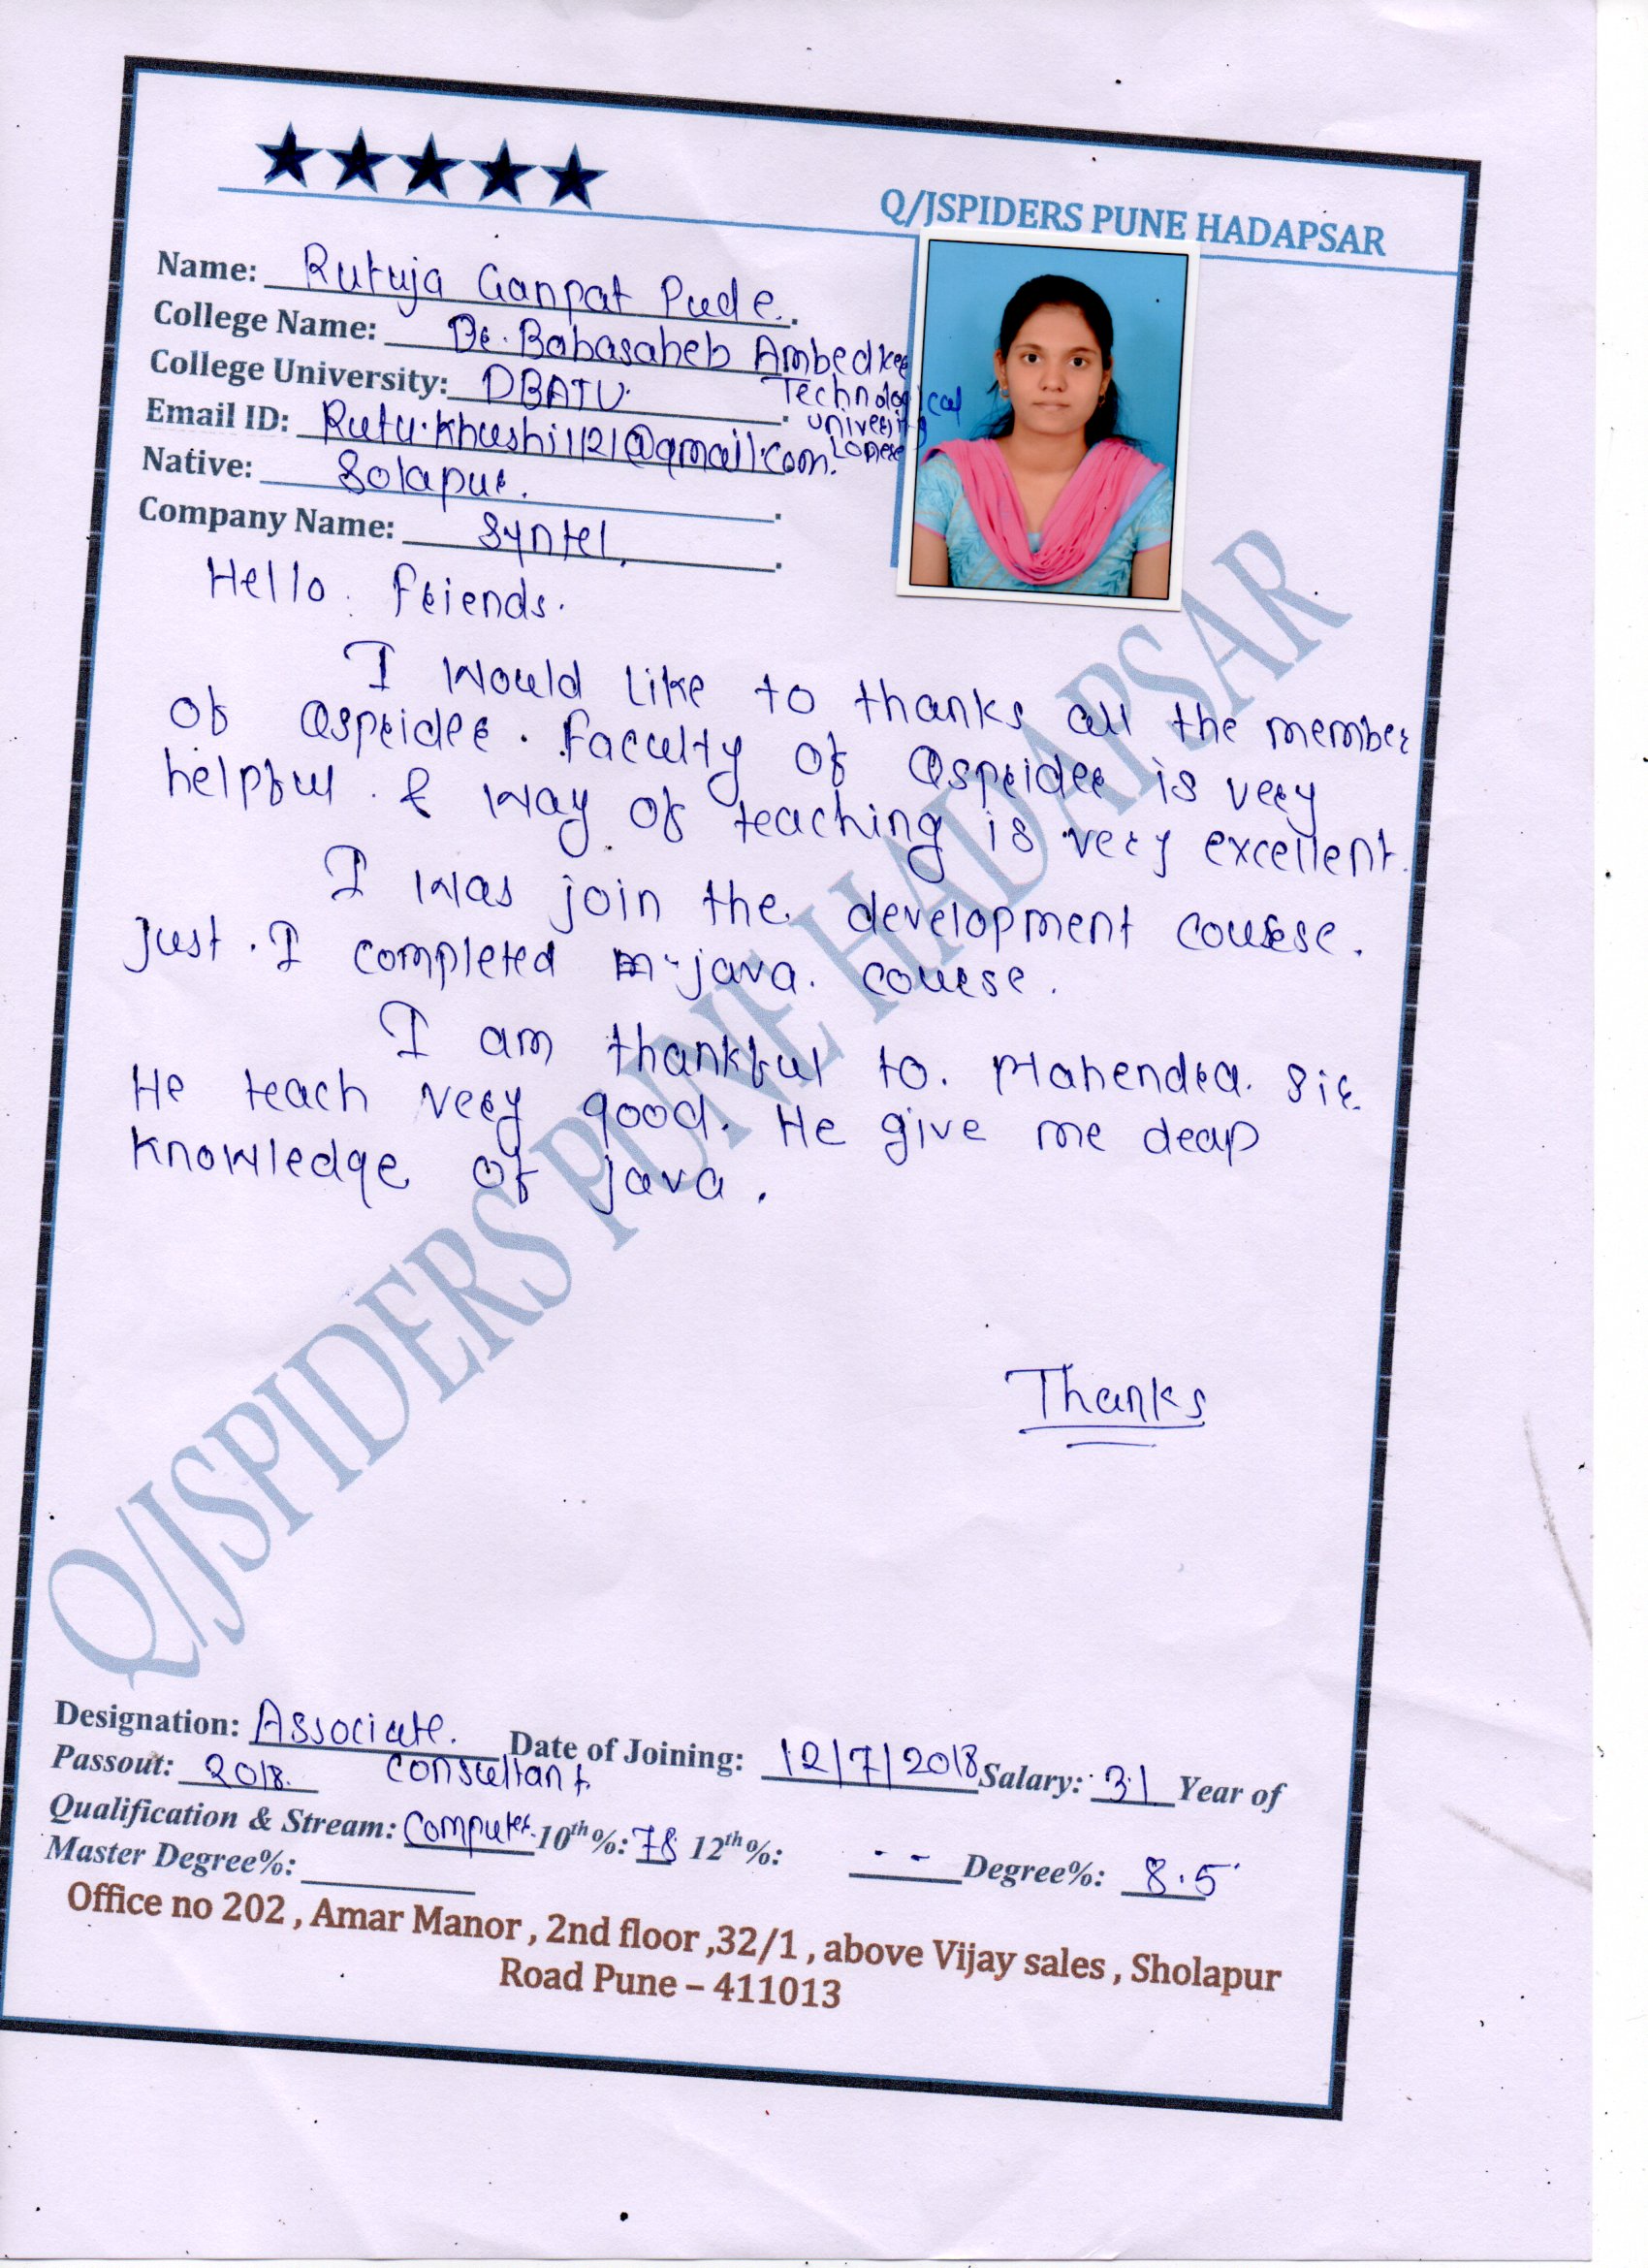 Q/JSPIDERS PUNE HADAPSAR
Name: Rutuja Ganpat Pude.
College Name: Dr. Babasaheb Ambedker
Technological
University
Lonere
College University: DBATU.
Email ID: Rutu.khushi1121@gmail.com.
Native: Solapur.
Company Name: Syntel.
Hello. Friends.
I would like to thanks all the member
of Qsprider. Faculty of Qsprider is very
helpful. & way of teaching is very excellent.
I was join the. development course.
Just. I completed m-java. course.
I am thankful to. Mahendra. sir.
He teach very good. He give me deap
knowledge of java.
Thanks
Designation: Associate. Date of Joining: 12/7/2018 Salary: 3.1 Year of
Consultant
Passout: 2018.
Qualification & Stream: Computer. 10th%: 78 12th%: -- Degree%: 8.5
Master Degree%:
Office no 202 , Amar Manor , 2nd floor ,32/1 , above Vijay sales , Sholapur
Road Pune – 411013
Q/JSPIDERS PUNE HADAPSAR